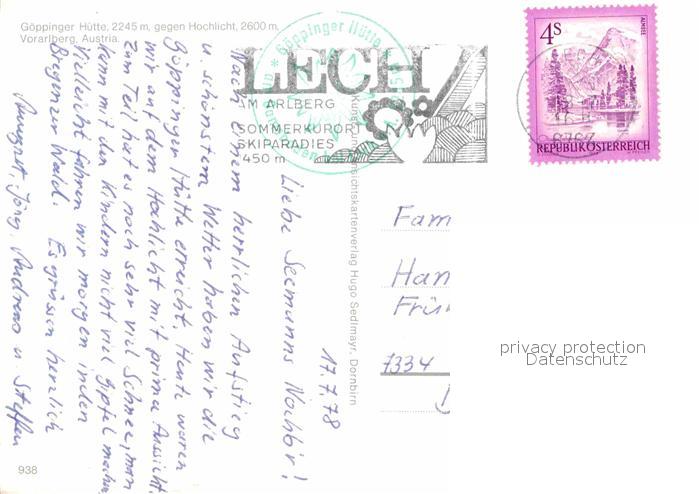 Göppinger Hütte, 2245 m, gegen Hochlicht, 2600 m,
Vorarlberg, Austria.
Göppinger Hütte
LECH
AM ARLBERG
SOMMERKURORT
SKIPARADIES
1450 m
4S
ALMSEE
REPUBLIK ÖSTERREICH
17.7.78
Liebe Seemanns Nachbr!
Nach einem herrlichen Aufstieg
u. schönstem Wetter haben wir die
Göppinger Hütte erreicht. Heute waren
wir auf dem Hochlicht mit prima Aussicht.
Zum Teil hat es noch sehr viel Schnee, man
kann mit den Kindern nicht viel Gipfel machen
Vielleicht fahren wir morgen in den
Bregenzer Wald. Es grüssen herzlich
Jörg, Andreas u Steffen
Ansichtskartenverlag Hugo Sedlmayr, Dornbirn
Fam
Han
Frü
7334
privacy protection
Datenschutz
938